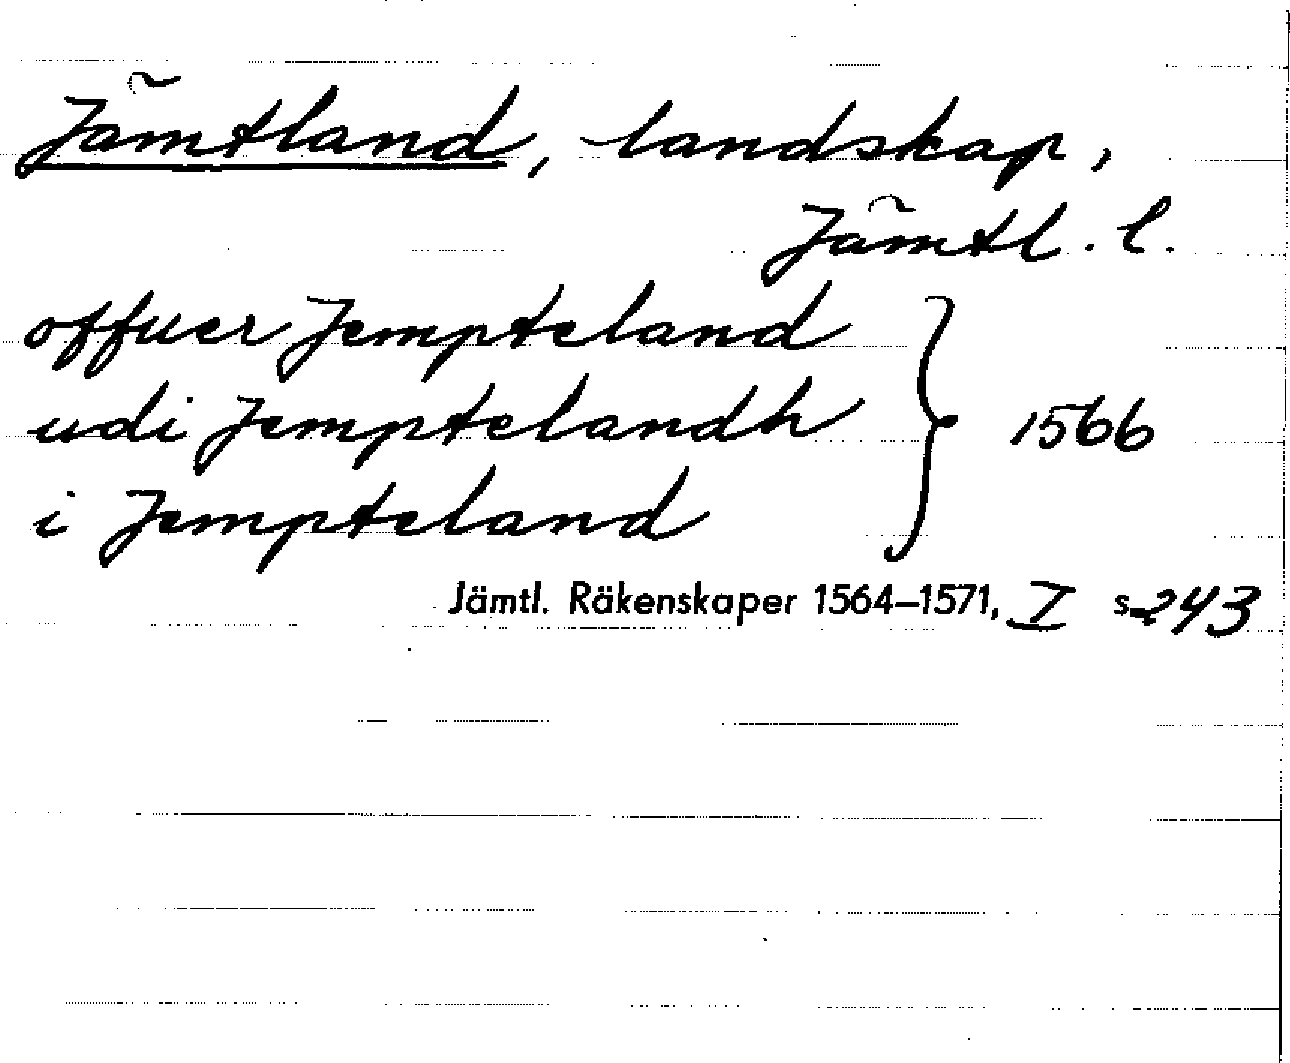 Jämtland, landskap,
Jämtl. l.
offuer Jempteland
udi Jemptelandh } 1566
i Jempteland
Jämtl. Räkenskaper 1564–1571, I s. 243